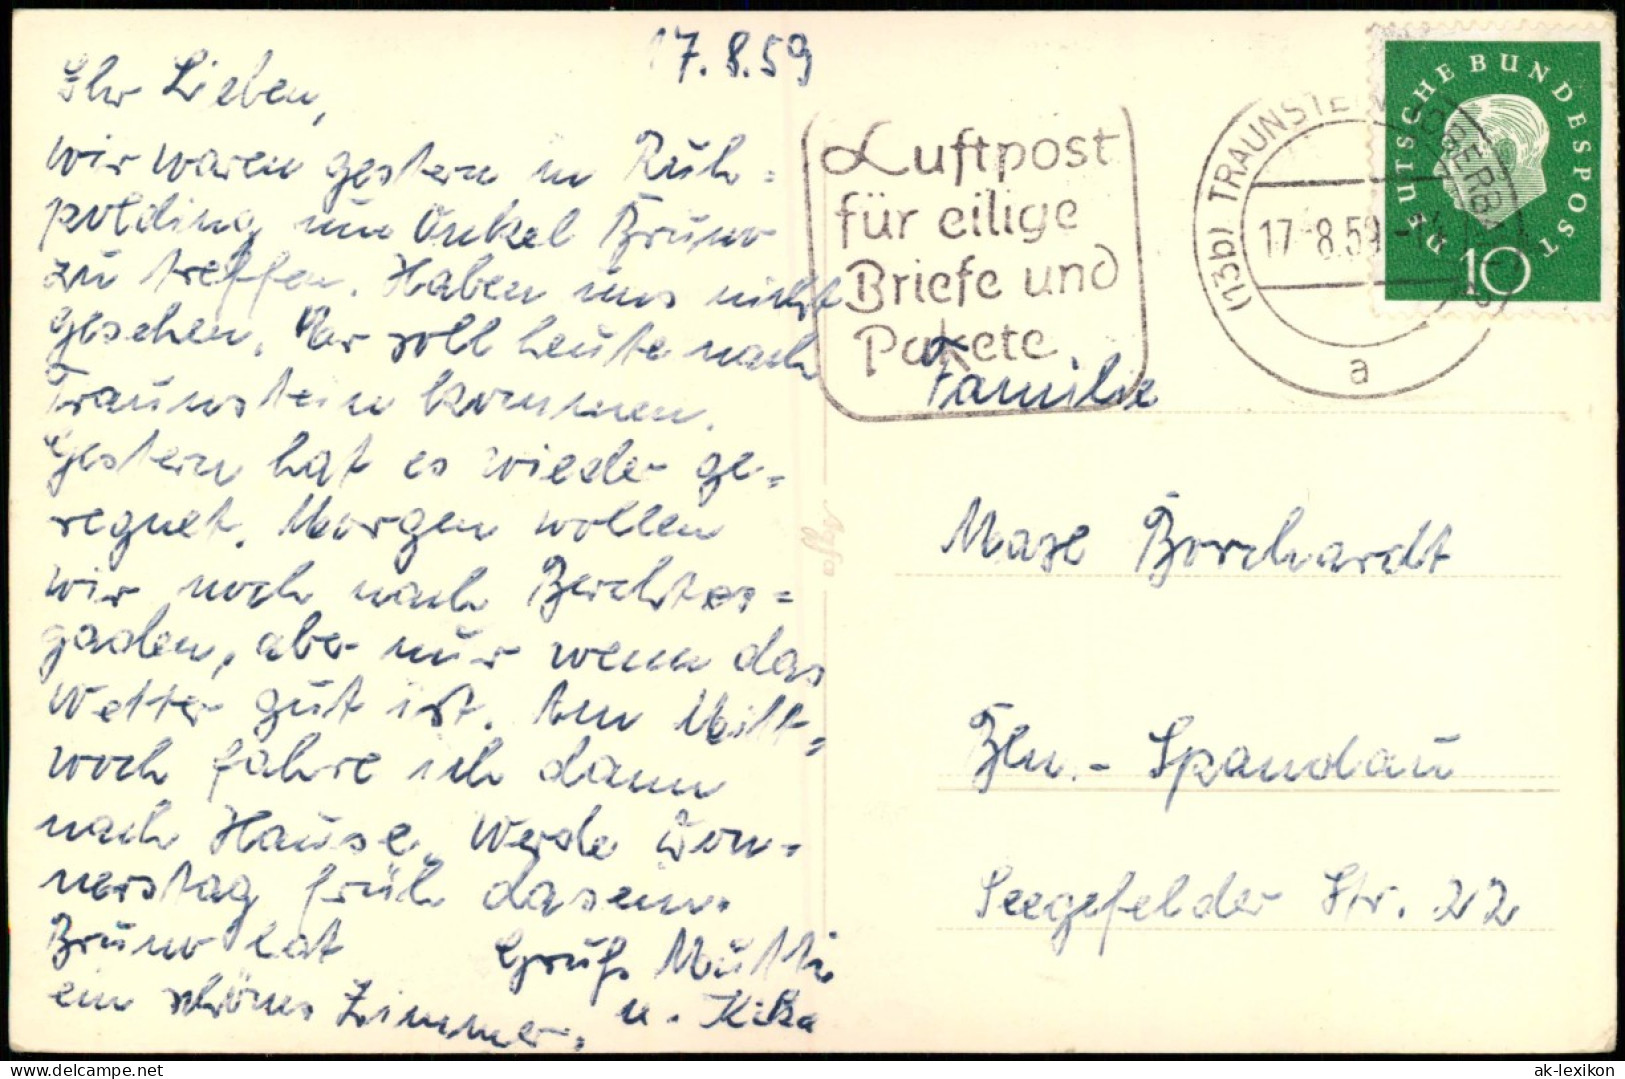 17.8.59
Ihr Lieben,
wir waren gestern in Ruh=
polding um Onkel Bruno
zu treffen. Haben uns nicht
gesehen. Er soll heute nach
Traunstein kommen.
Gestern hat es wieder ge=
regnet. Morgen wollen
wir noch nach Berchtes=
gaden, aber nur wenn das
Wetter gut ist. Am Mitt=
woch fahre ich dann
nach Hause. Werde Don=
nerstag früh dasein.
Bruno hat
ein schönes Zimmer.
Gruß Mutti
u. 
Luftpost
für eilige
Briefe und
Pakete
(13b) TRAUNSTEIN (OBERB
17.-8.59
a
DEUTSCHE BUNDESPOST
10
Agfa
Familie
Max Borchardt
Bln.- Spandau
Seegefelder Str. 22
www.delcampe.net
ak-lexikon